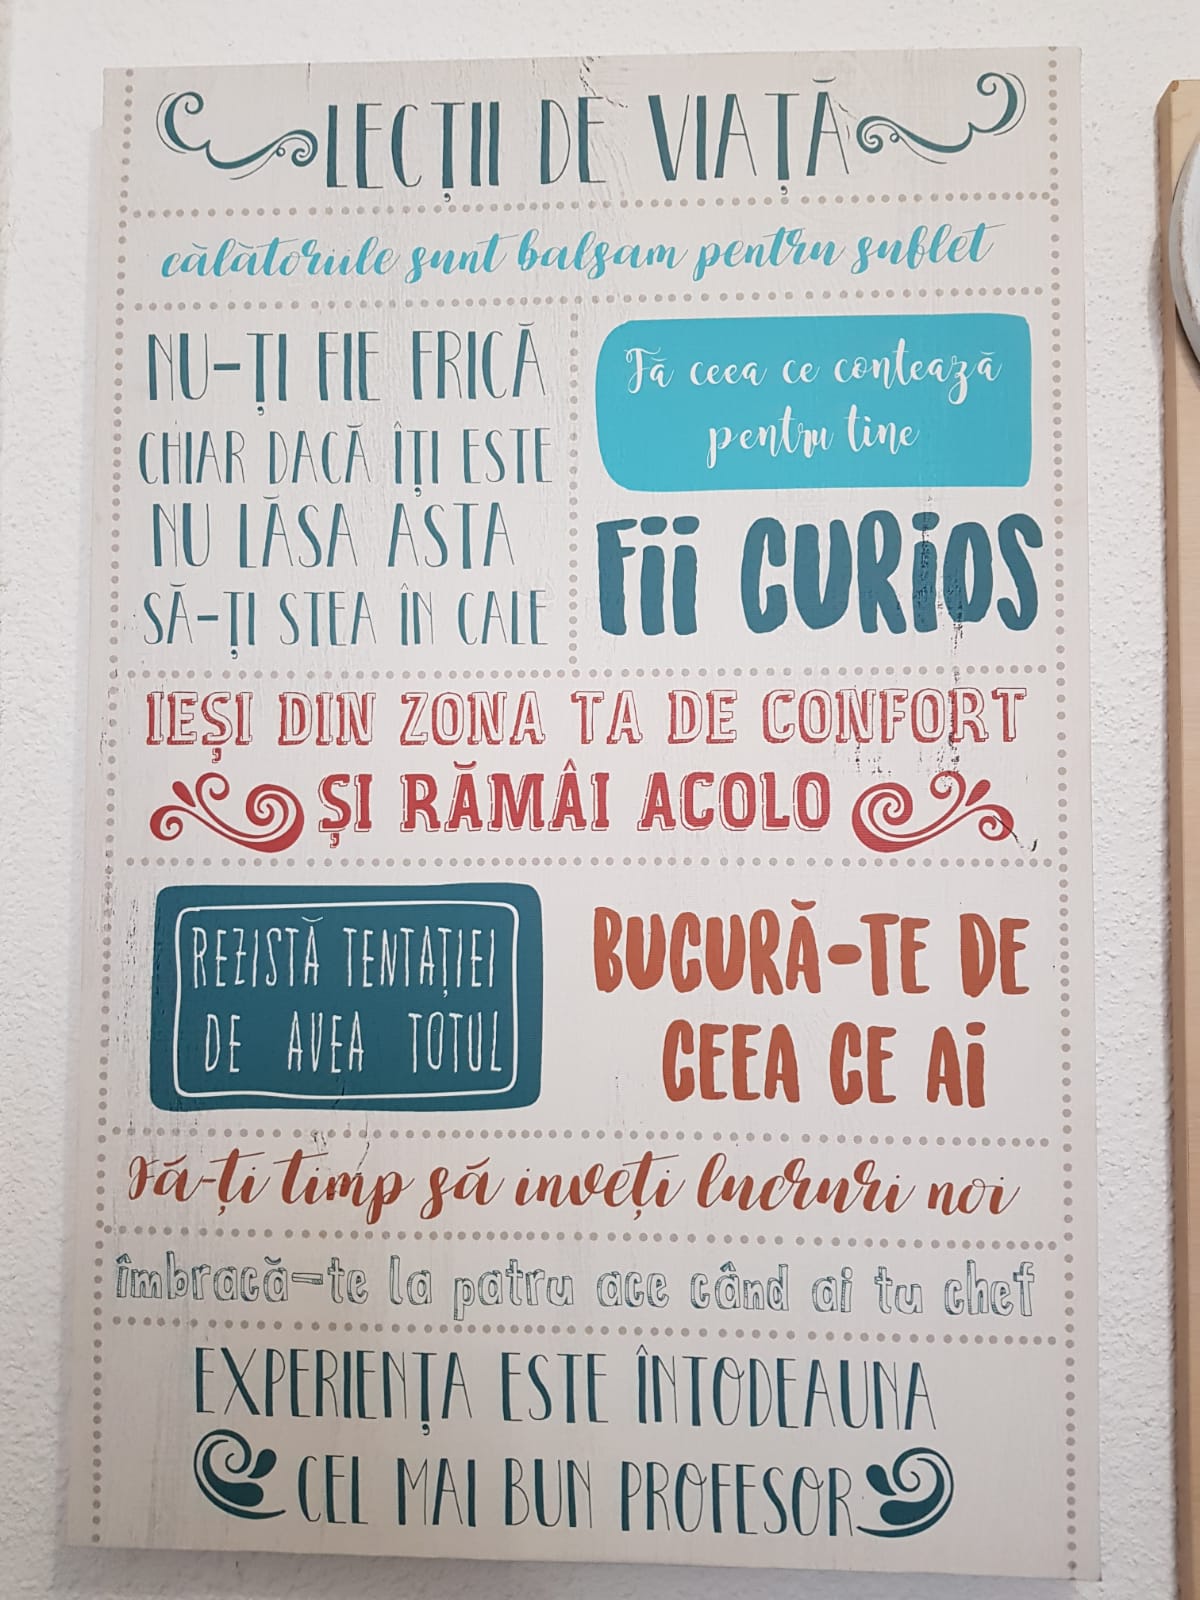 LECȚII DE VIAȚĂ
călătoriile sunt balsam pentru suflet
NU-ȚI FIE FRICĂ
CHIAR DACĂ ÎȚI ESTE
NU LĂSA ASTA
SĂ-ȚI STEA ÎN CALE
Fă ceea ce contează
pentru tine
Fii CURiOS
IEȘI DIN ZONA TA DE CONFORT
ȘI RĂMÂI ACOLO
REZISTĂ TENTAȚIEI
DE AVEA TOTUL
BUCURĂ-TE DE
CEEA CE Ai
Fă-ți timp să inveți lucruri noi
îmbracă-te la patru ace când ai tu chef
EXPERIENȚA ESTE ÎNTODEAUNA
CEL MAI BUN PROFESOR